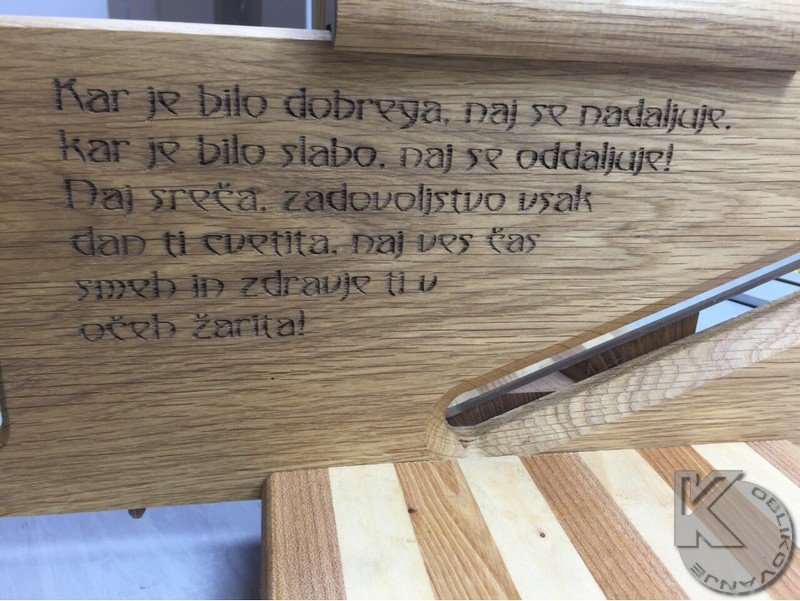 Kar je bilo dobrega, naj se nadaljuje,
kar je bilo slabo, naj se oddaljuje!
Naj sreča, zadovoljstvo vsak
dan ti cvetita, naj ves čas
smeh in zdravje ti v
očeh žarita!
K OBLIKOVANJE